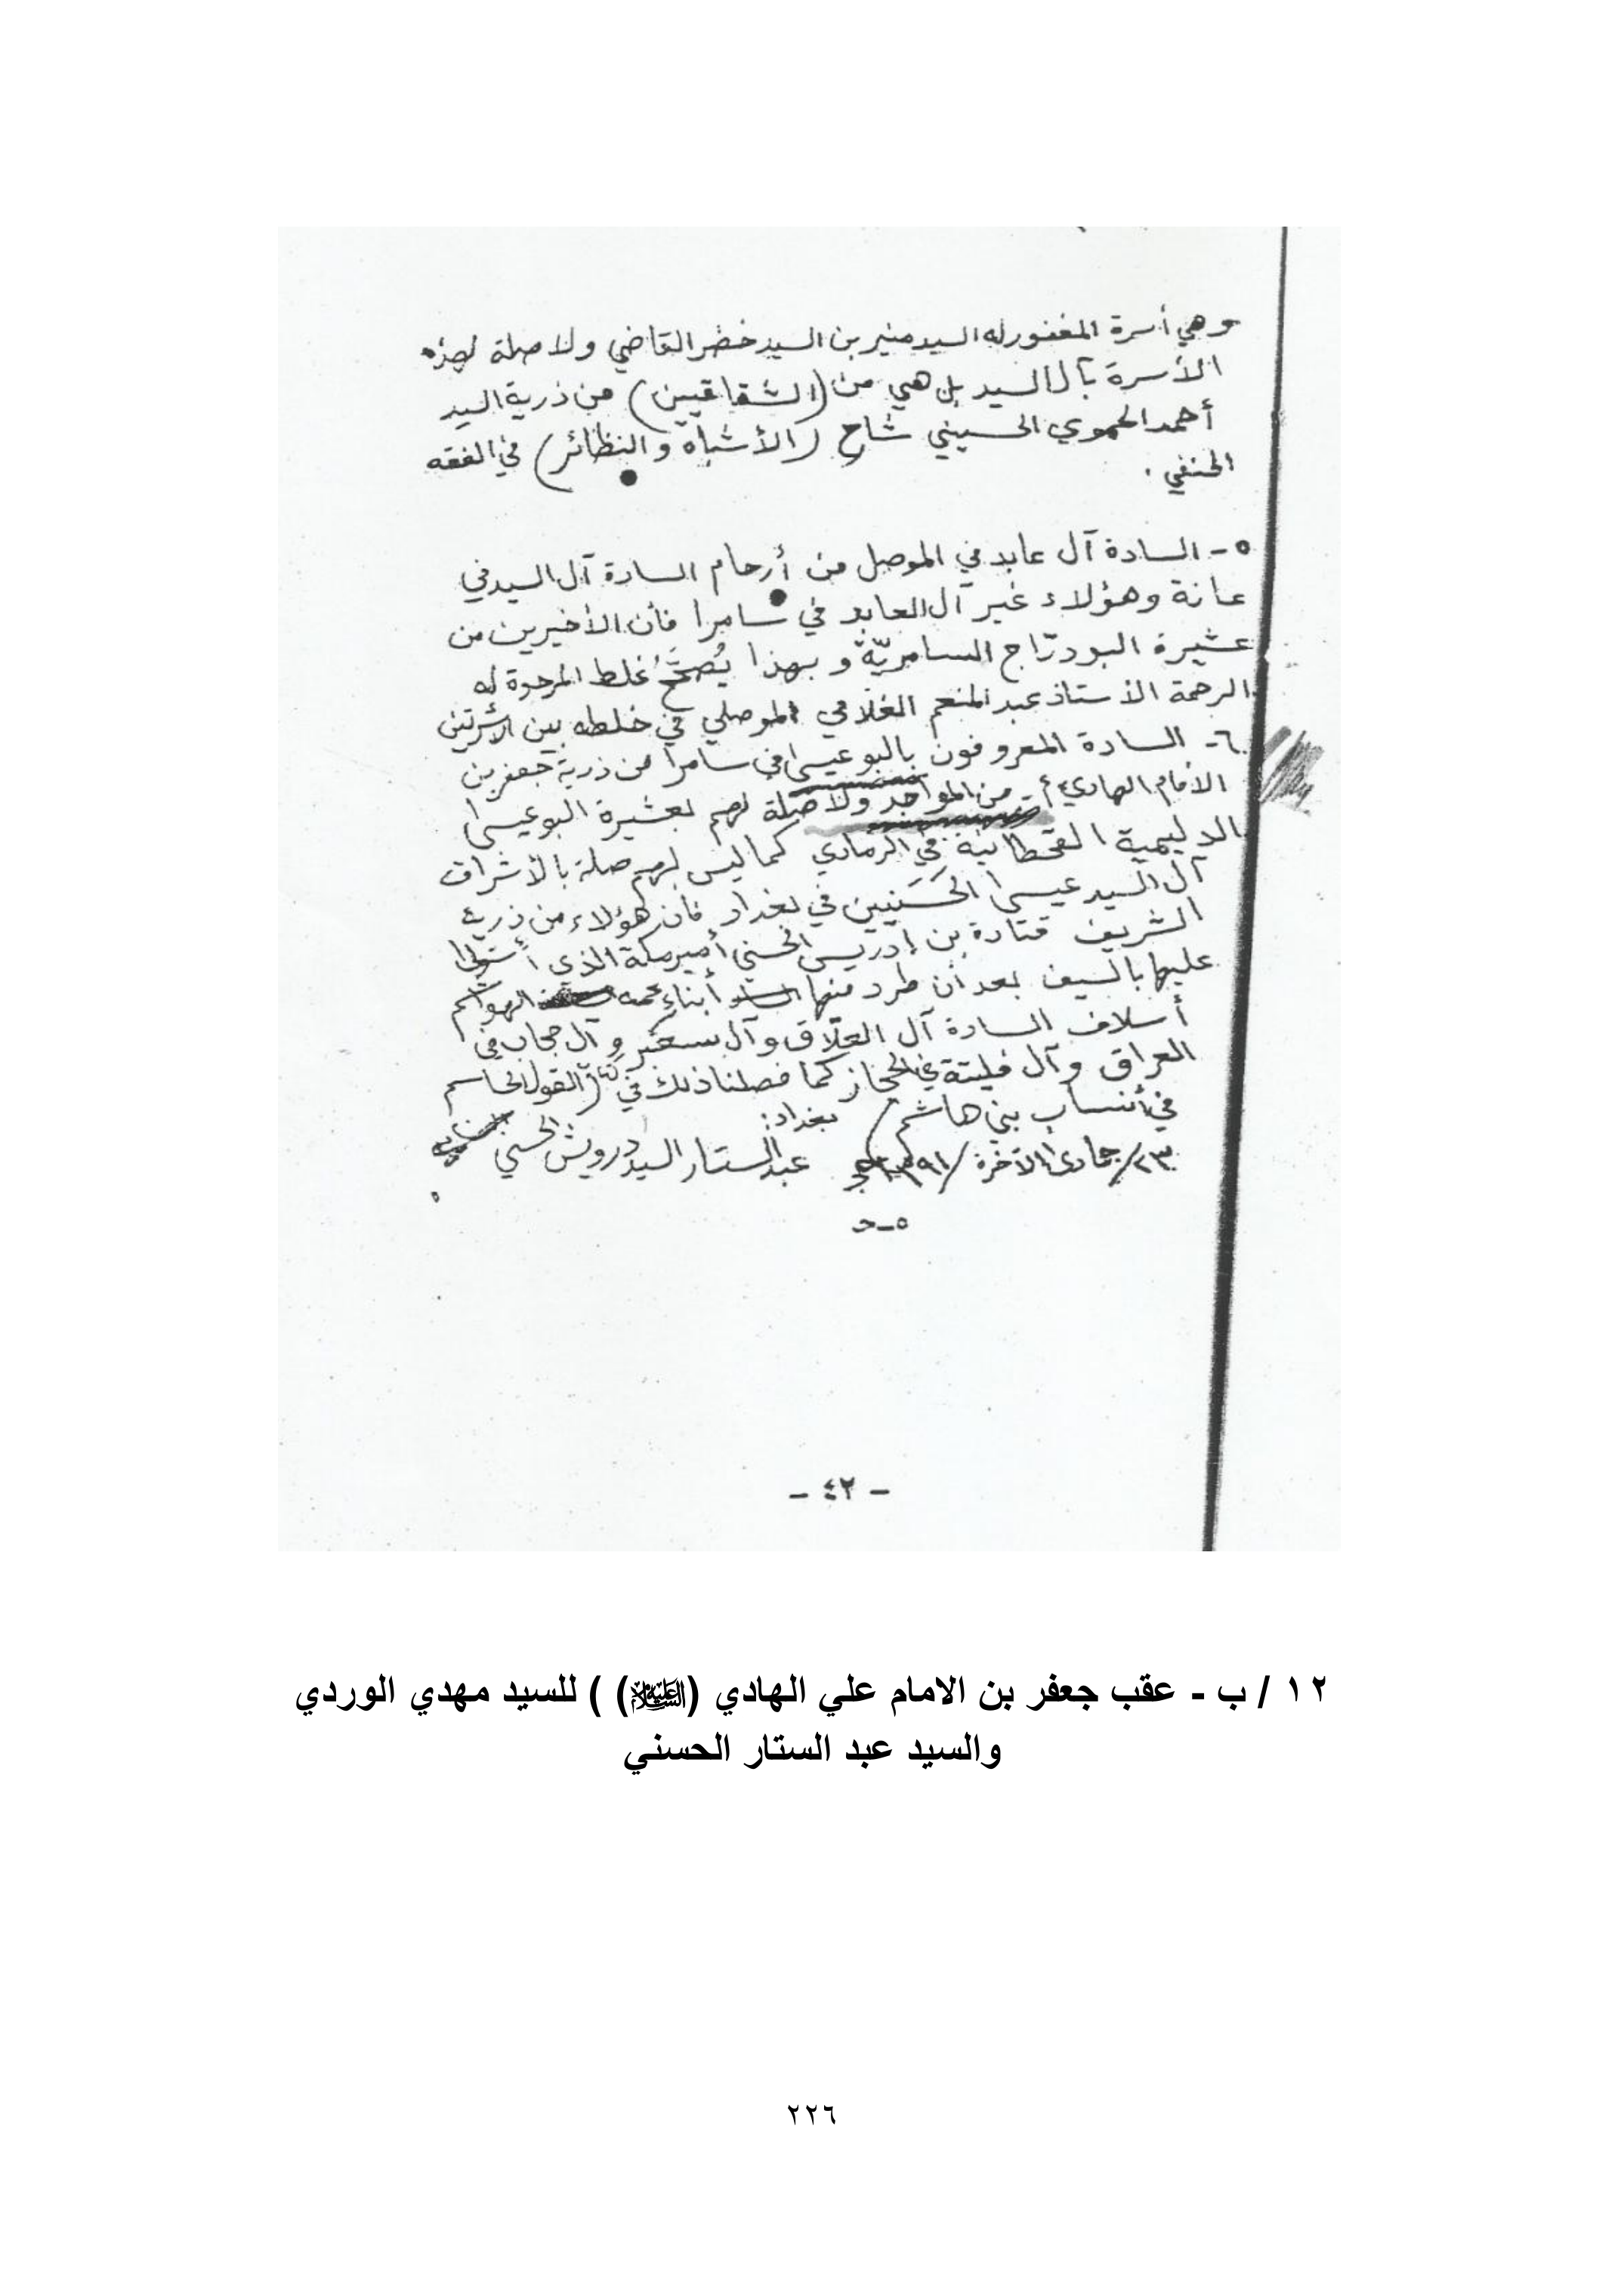 وهي أسرة المغفور له السيد منير بن السيد خضر القاضي ولا صلة لهذه
الأسرة بآل السيد بل هي من (الشقاقيين) من ذرية السيد
أحمد الحموي الحسيني شارح (الأشباه والنظائر) في الفقه
الحنفي .
٥- السادة آل عابد في الموصل من أرحام السادة آل السيد في
عانة وهؤلاء غير آل العابد في سامرا فأن الأخيرين من
عشيرة البو درّاج السامريّة وبهذا يُصَحَّحُ غلط المرجوة له
الرحمة الأستاذ عبد المنعم الغلامي الموصلي في خلطه بين الأسرتين
٦- السادة المعروفون بالبو عيسى في سامرا من ذرية جعفر بن
الأمام الهادي ع من المواجد ولا صلة لهم بعشيرة البو عيسى
الدليمية القحطانية في الرمادي كما ليس لهم صلة بالأشراف
آل السيد عيسى الحَسَنيين في بغداد فأن هؤلاء من ذرية
الشريف قتادة بن إدريس الحسني أمير مكة الذي أستولى
عليها بالسيف بعد أن طرد منها أبناء عمه الهواشم
أسلاف السادة آل العلّاق وآل سعبر وآل حجاب في
العراق وآل فليتة في الحجاز كما فصلنا ذلك في (القول الحاسم
في أنساب بني هاشم) بغداد:
٢٣/جمادى الآخرة/١٣٩١هـ عبد الستار السيد درويش الحسني
٥-د
- ٤٢ -
١٢ / ب - عقب جعفر بن الامام علي الهادي (عليه السلام) ) للسيد مهدي الوردي
والسيد عبد الستار الحسني
٢٢٦